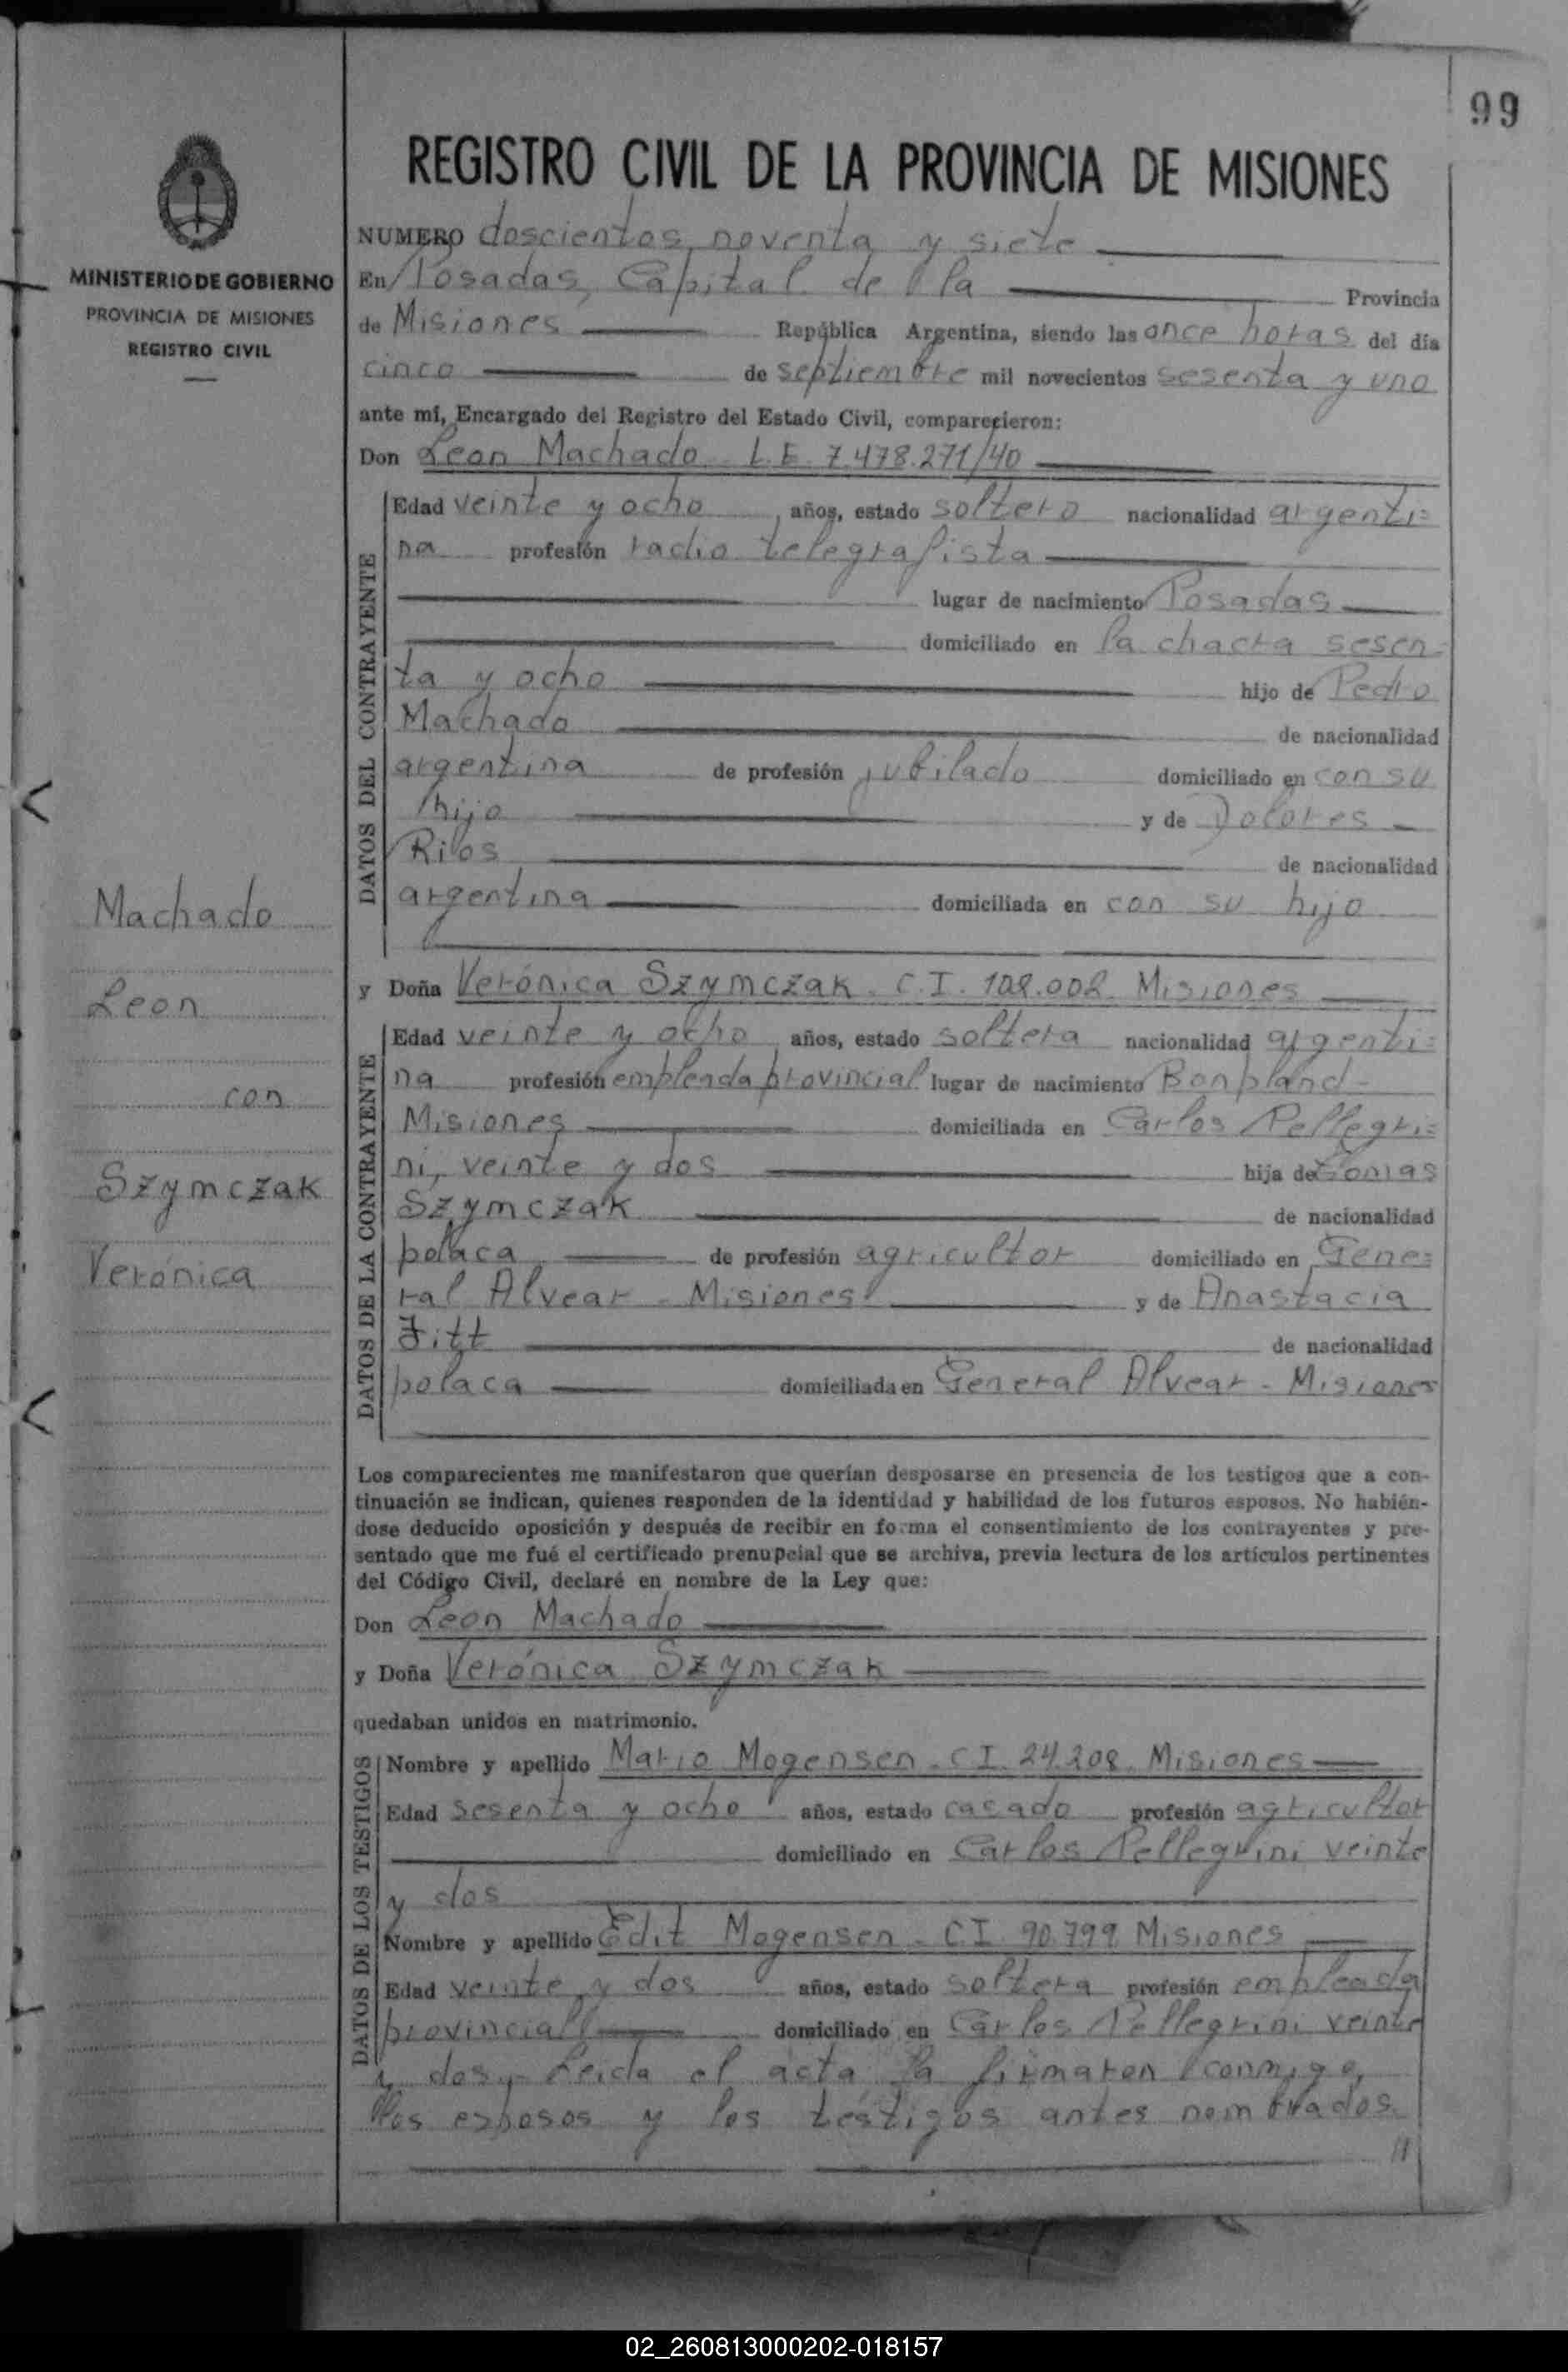 99
REGISTRO CIVIL DE LA PROVINCIA DE MISIONES
MINISTERIO DE GOBIERNO
PROVINCIA DE MISIONES
REGISTRO CIVIL
NUMERO doscientos noventa y siete
En Posadas, Capital de la Provincia
de Misiones República Argentina, siendo las once horas del día
cinco de septiembre mil novecientos sesenta y uno
ante mí, Encargado del Registro del Estado Civil, comparecieron:
Don Leon Machado L.E. 7.478.271/40
DATOS DEL CONTRAYENTE
Edad veinte y ocho años, estado soltero nacionalidad argenti=
na profesión radio telegrafista
lugar de nacimiento Posadas
domiciliado en la chacra sesen=
ta y ocho hijo de Pedro
Machado de nacionalidad
argentina de profesión jubilado domiciliado en con su
hijo y de Dolores
Rios de nacionalidad
argentina domiciliada en con su hijo
Machado
Leon
con
Szymczak
Verónica
y Doña Verónica Szymczak - C.I. 102.002 Misiones
DATOS DE LA CONTRAYENTE
Edad veinte y ocho años, estado soltera nacionalidad argenti=
na profesión empleada provincial lugar de nacimiento Bonpland -
Misiones domiciliada en Carlos Pellegri=
ni, veinte y dos hija de Tomas
Szymczak de nacionalidad
polaca de profesión agricultor domiciliado en Gene=
ral Alvear - Misiones y de Anastacia
Fitt de nacionalidad
polaca domiciliada en General Alvear - Misiones
Los comparecientes me manifestaron que querían desposarse en presencia de los testigos que a con-
tinuación se indican, quienes responden de la identidad y habilidad de los futuros esposos. No habién-
dose deducido oposición y después de recibir en forma el consentimiento de los contrayentes y pre-
sentado que me fué el certificado prenupcial que se archiva, previa lectura de los artículos pertinentes
del Código Civil, declaré en nombre de la Ley que:
Don Leon Machado
y Doña Verónica Szymczak
quedaban unidos en matrimonio.
DATOS DE LOS TESTIGOS
Nombre y apellido Mario Mogensen - C.I. 24.208 Misiones
Edad sesenta y ocho años, estado casado profesión agricultor
domiciliado en Carlos Pellegrini veinte
y dos
Nombre y apellido Edit Mogensen - C.I. 90.799 Misiones
Edad veinte y dos años, estado soltera profesión empleada
provincial domiciliado en Carlos Pellegrini veinte
y dos,- Leida el acta la firmaron conmigo,
los esposos y los testigos antes nombrados
//
02_260813000202-018157